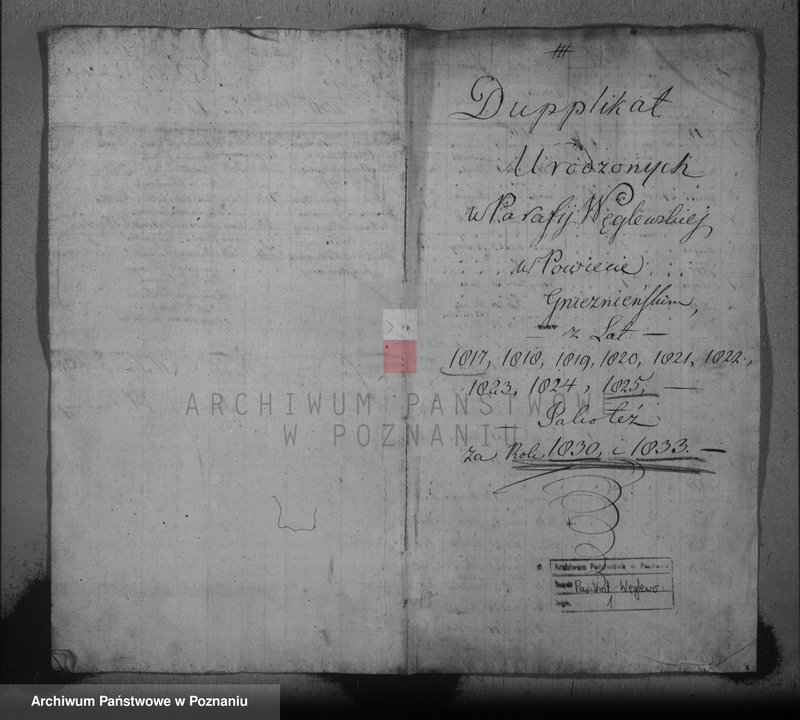 Dupplikat
Urodzonych
w Parafij Węglewskiej
w Powiecie
Gnieznieńskim,
z Lat —
1817, 1818, 1819, 1820, 1821, 1822,
1823, 1824, 1825, —
— Jako też
za Rok 1830, i 1833. —
ARCHIWUM PAŃSTWOWE
W POZNANIU
Archiwum Państwowe w Poznaniu
Par. kat Węglewo
1
Archiwum Państwowe w Poznaniu